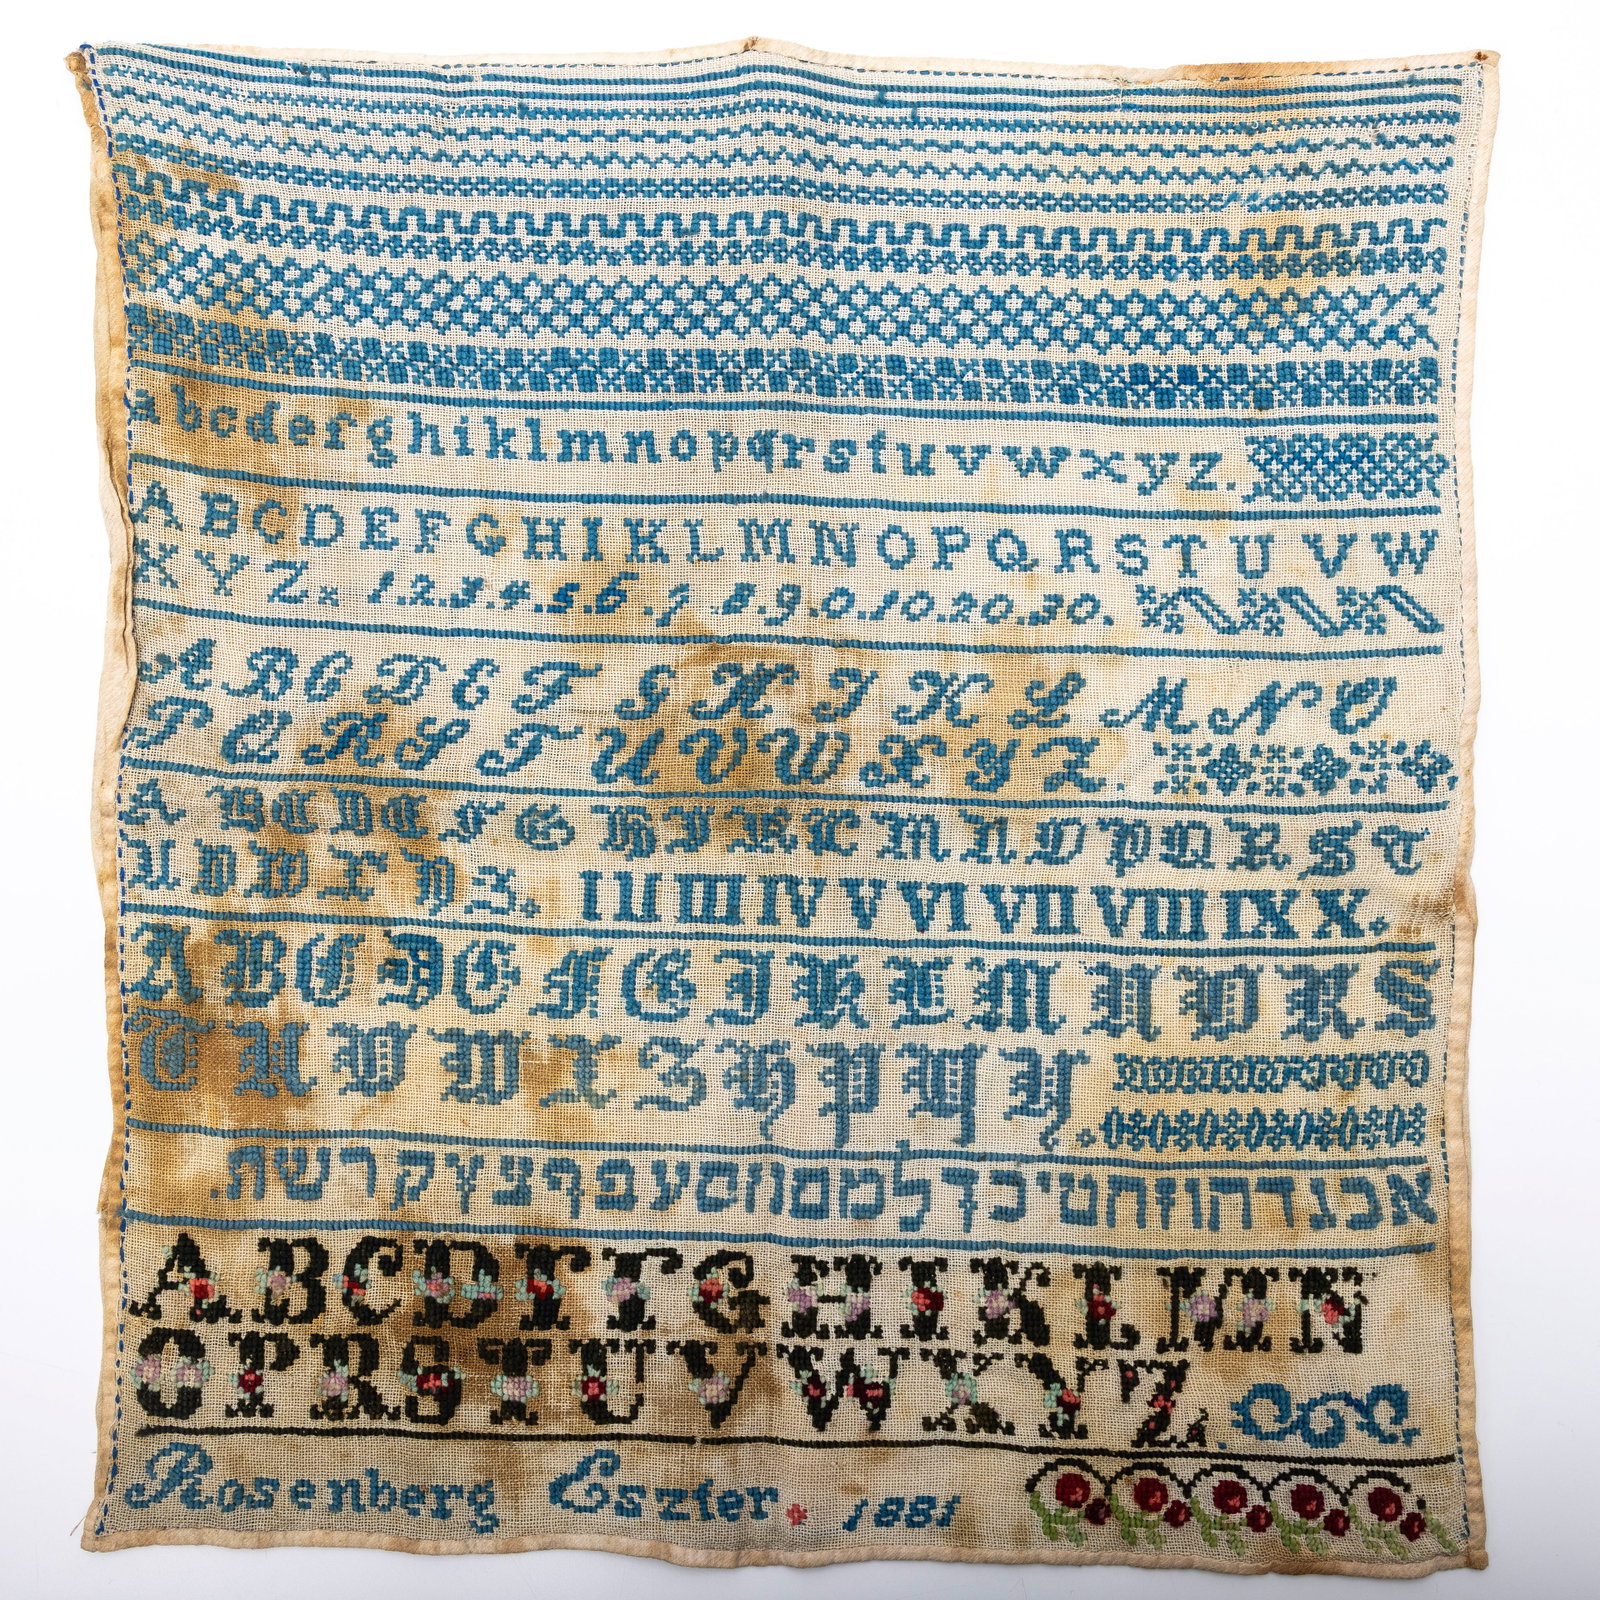 a b c d e f g h i k l m n o p q r s t u v w x y z.
A B C D E F G H I K L M N O P Q R S T U V W
X Y Z x 1.2.3.4.5.6.7.8.9.0.10.20.30.
A B C D E F G H I K L M N O
P Q R S T U V W X Y Z.
A B C D E F G H I K L M N O P Q R S T
U V W X Y Z. I II III IV V VI VII VIII IX X.
A B C D E F G I K L M N O R S
T U V W X Z H P Q Y.
אבגדהוזחטיכךלמםנסעפףצץקרשת.
A B C D E F G H I K L M N
O P R S T U V W X Y Z.
Rosenberg Eszter 1881